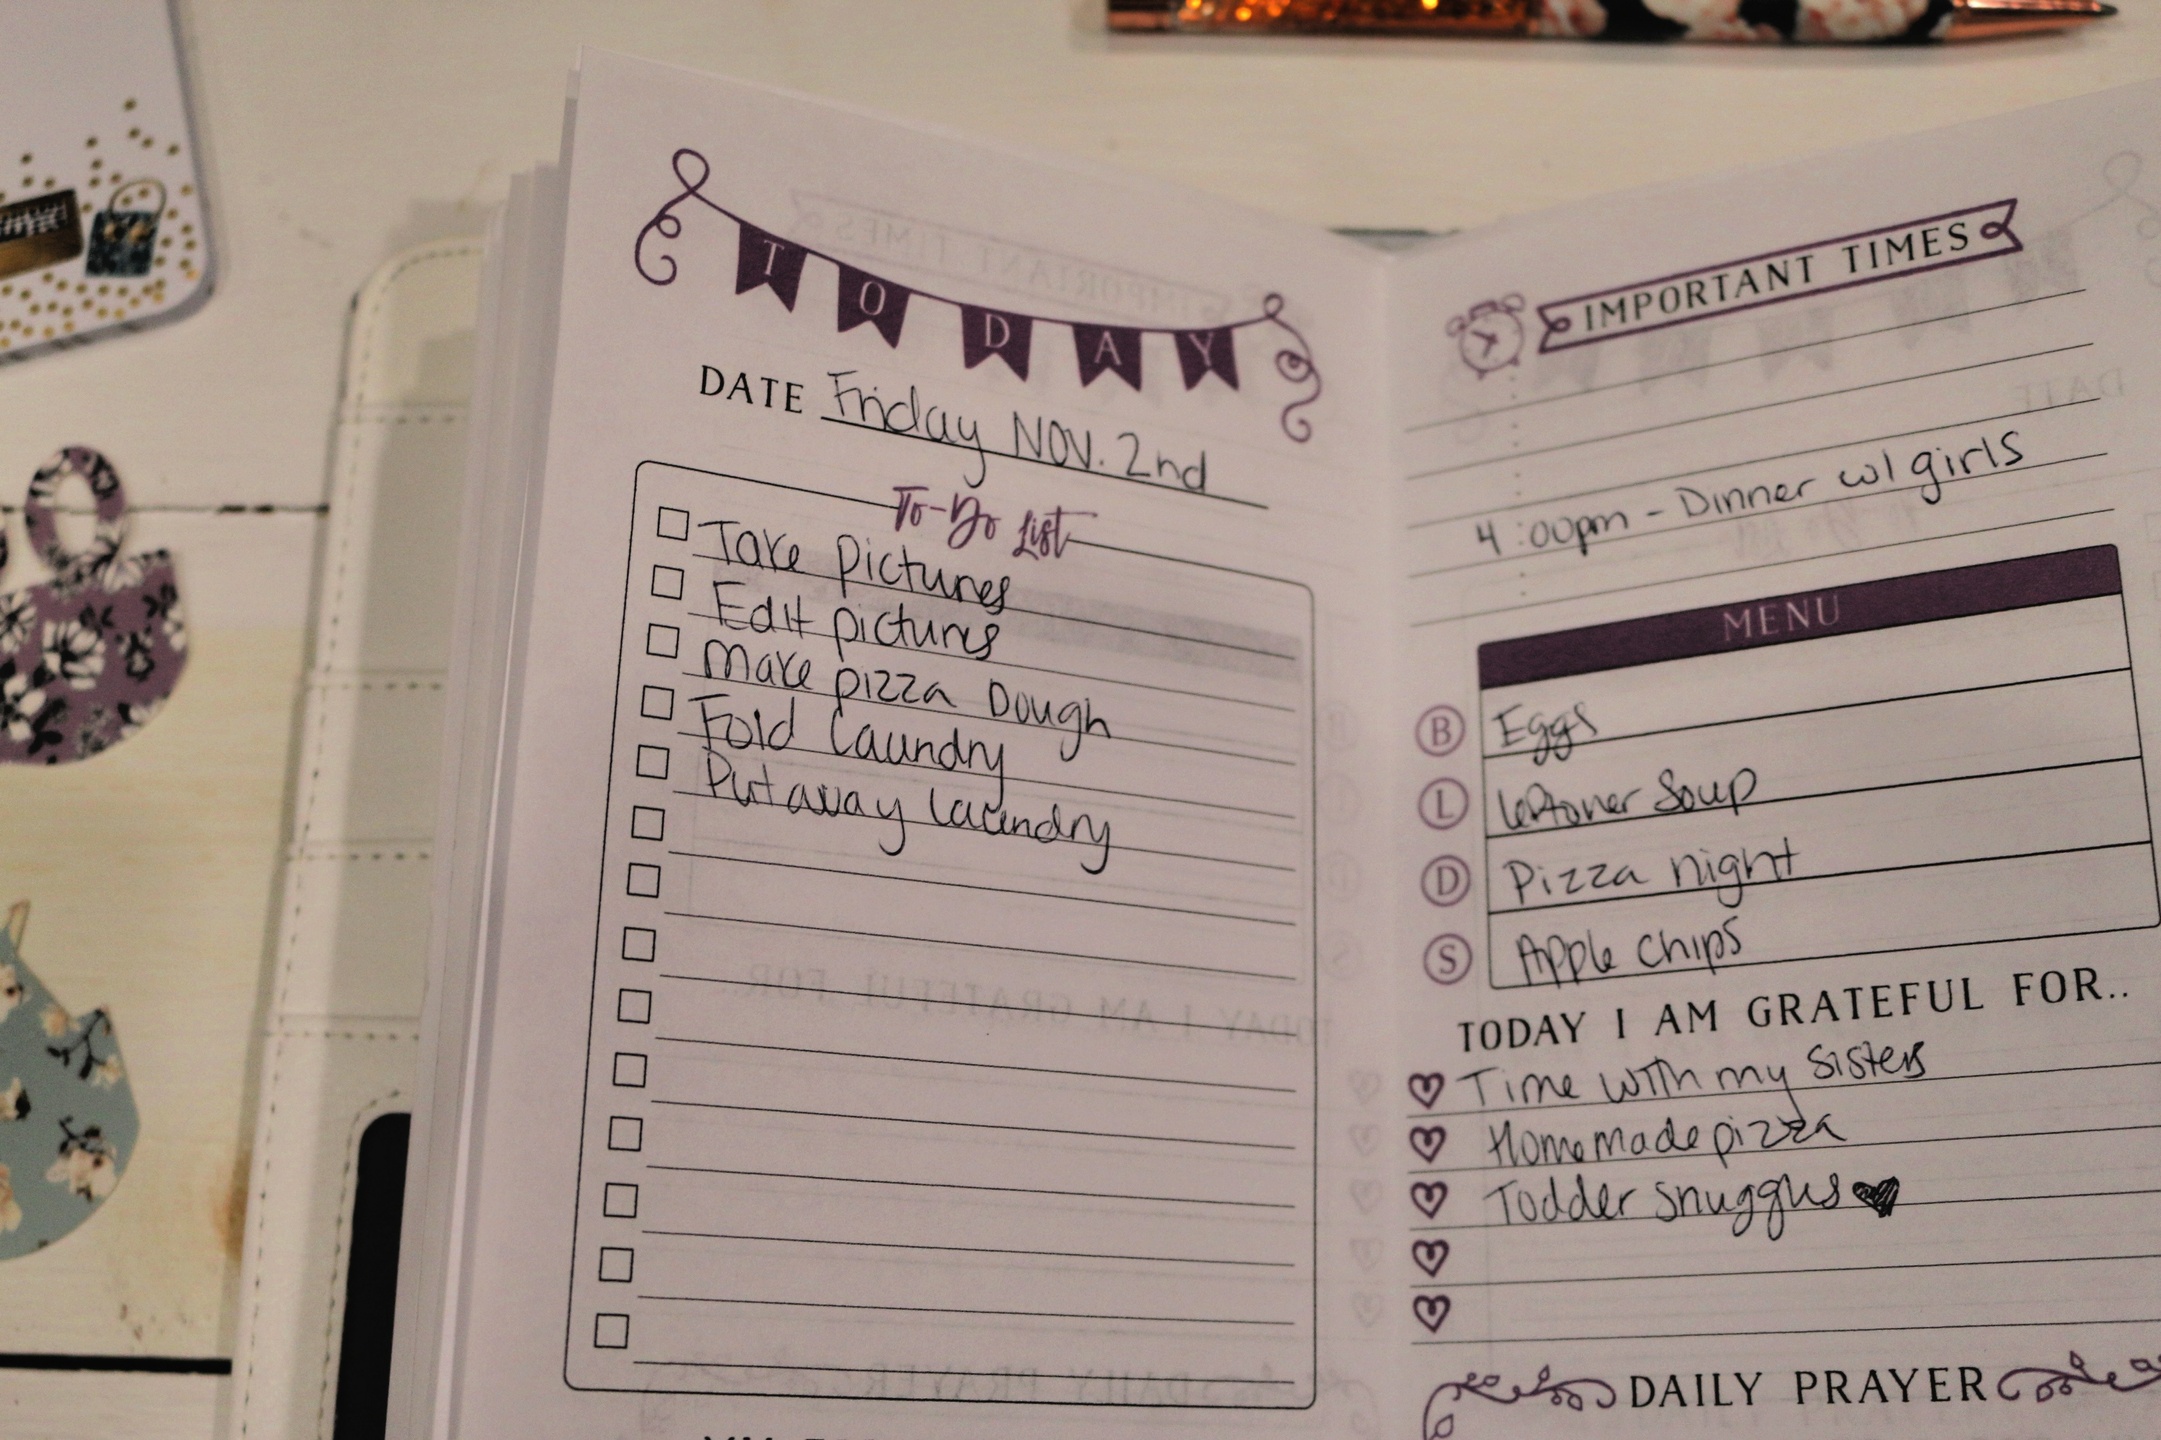 TODAY
DATE Friday NOV. 2nd
To-Do List
Take pictures
Edit pictures
Make pizza Dough
Fold Laundry
Put away laundry
IMPORTANT TIMES
4:00pm - Dinner w/ girls
MENU
B Eggs
L leftover Soup
D Pizza night
S Apple chips
TODAY I AM GRATEFUL FOR..
Time with my sisters
Homemade pizza
Toddler snuggles
DAILY PRAYER